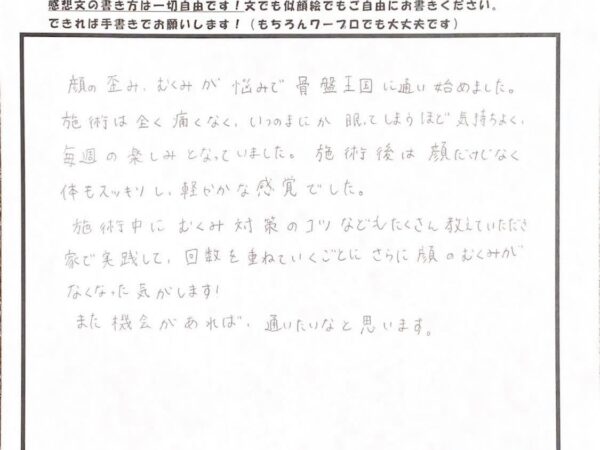 感想文の書き方は一切自由です！文でも似顔絵でもご自由にお書きください。
できれば手書きでお願いします！（もちろんワープロでも大丈夫です）
顔の歪み、むくみが悩みで骨盤王国に通い始めました。
施術は全く痛くなく、いつのまにか眠ってしまうほど気持ちよく、
毎週の楽しみとなっていました。施術後は顔だけじなく
体もスッキリし、軽やかな感覚でした。
施術中にむくみ対策のコツなどもたくさん教えていただき
家で実践して、回数を重ねていくごとにさらに顔のむくみが
なくなった気がします！
また機会があれば、通いたいなと思います。